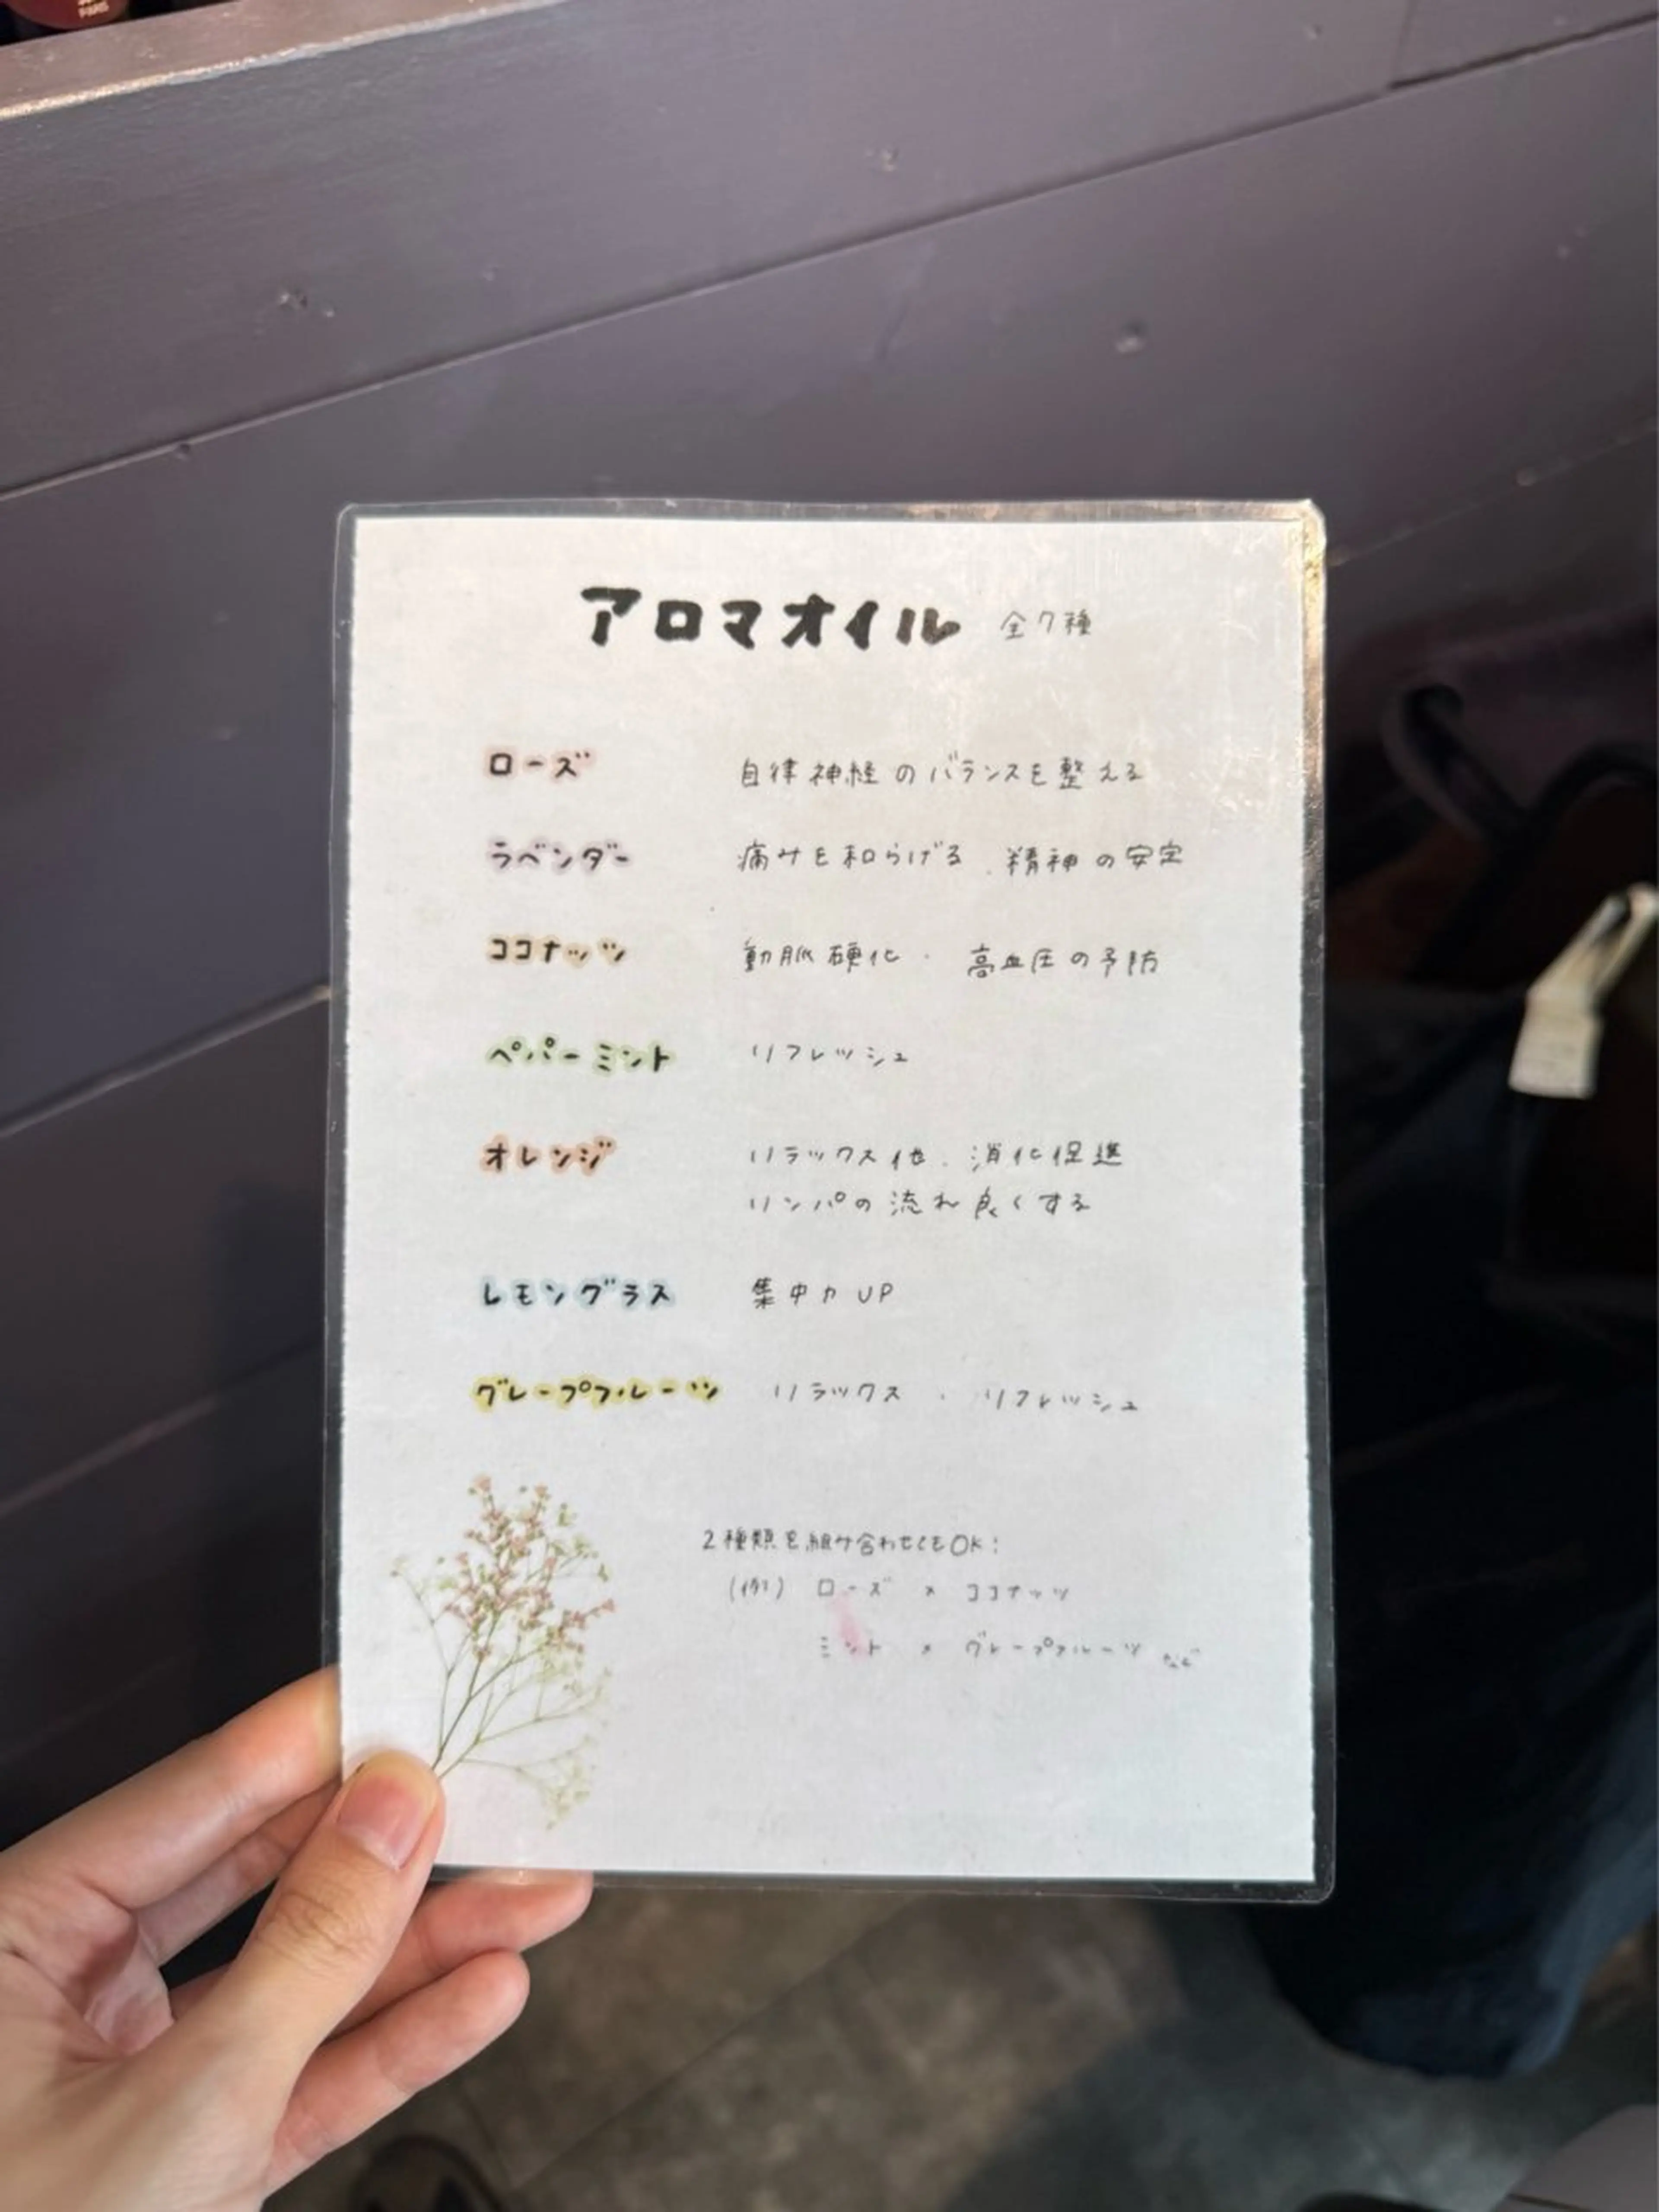 PARIS
アロマオイル 全7種
ローズ 自律神経のバランスを整える
ラベンダー 痛みを和らげる、精神の安定
ココナッツ 動脈硬化・高血圧の予防
ペパーミント リフレッシュ
オレンジ リラックス他、消化促進
リンパの流れ良くする
レモングラス 集中力UP
グレープフルーツ リラックス・リフレッシュ
2種類を組み合わせてもOK!
(例) ローズ × ココナッツ
ミント × グレープフルーツ など